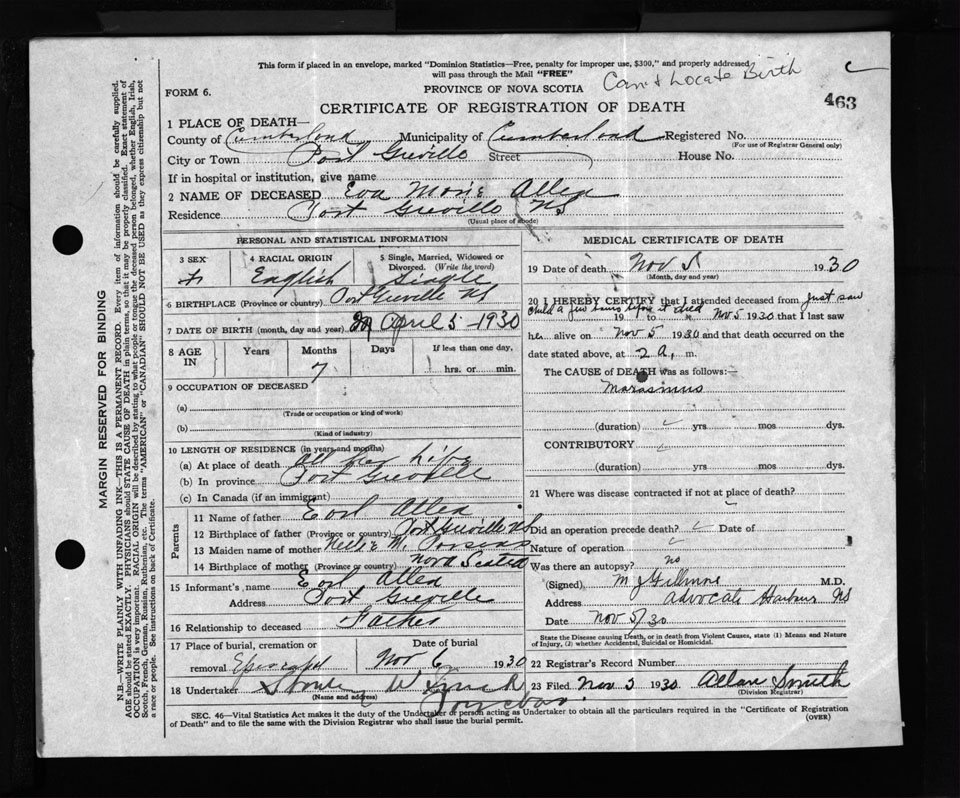 This form if placed in an envelope, marked "Dominion Statistics—Free, penalty for improper use, $300," and properly addressed,
will pass through the Mail "FREE"
Can't Locate Birth
FORM 6.
PROVINCE OF NOVA SCOTIA
463
CERTIFICATE OF REGISTRATION OF DEATH
1 PLACE OF DEATH—
County of Cumberland Municipality of Cumberland Registered No.
(For use of Registrar General only)
City or Town Port Greville Street House No.
If in hospital or institution, give name
2 NAME OF DECEASED Eva Marie Allen
Residence Port Greville NS
(Usual place of abode)
PERSONAL AND STATISTICAL INFORMATION
3 SEX F
4 RACIAL ORIGIN English
5 Single, Married, Widowed or Divorced. (Write the word) Single
6 BIRTHPLACE (Province or country) Port Greville NS
7 DATE OF BIRTH (month, day and year) April 5 - 1930
8 AGE IN
Years Months Days If less than one day,
7 hrs. or min.
9 OCCUPATION OF DECEASED
(a)
(Trade or occupation or kind of work)
(b)
(Kind of industry)
10 LENGTH OF RESIDENCE (in years and months)
(a) At place of death all her Life
(b) In province Port Greville
(c) In Canada (if an immigrant)
Parents
11 Name of father Earl Allen
12 Birthplace of father (Province or country) Port Greville NS
13 Maiden name of mother Nellie M. Parsons
14 Birthplace of mother (Province or country) Nova Scotia
15 Informant's name Earl Allen
Address Port Greville
16 Relationship to deceased Father
17 Place of burial, cremation or Date of burial
removal Nov 6 1930
18 Undertaker
(Name and address)
MEDICAL CERTIFICATE OF DEATH
19 Date of death Nov 5 1930
(Month, day and year)
20 I HEREBY CERTIFY that I attended deceased from Just saw
child a few before it died
19 to Nov 5 1930 that I last saw
her alive on Nov 5 1930 and that death occurred on the
date stated above, at 2 a. m.
The CAUSE of DEATH was as follows:—
Marasmus
(duration) yrs mos dys.
CONTRIBUTORY
(duration) yrs mos dys.
21 Where was disease contracted if not at place of death?
Did an operation precede death? Date of
Nature of operation
Was there an autopsy? no
(Signed), M J Gillmore M.D.
Address Advocate Harbour NS
Date Nov 5/30
State the Disease causing Death, or in death from Violent Causes, state (1) Means and Nature
of Injury, (2) whether Accidental, Suicidal or Homicidal.
22 Registrar's Record Number
23 Filed Nov 5 1930 Allan Smith
(Division Registrar)
SEC. 46—Vital Statistics Act makes it the duty of the Undertaker or person acting as Undertaker to obtain all the particulars required in the "Certificate of Registration
of Death" and to file the same with the Division Registrar who shall issue the burial permit.
(OVER)
MARGIN RESERVED FOR BINDING
N.B.—WRITE PLAINLY WITH UNFADING INK—THIS IS A PERMANENT RECORD. Every item of information should be carefully supplied.
AGE should be stated EXACTLY. PHYSICIANS should STATE CAUSE OF DEATH in plain terms, so that it may be properly classified. Exact statement of
OCCUPATION is very important. RACIAL ORIGIN will be described by stating to what people or tongue the deceased person belonged, whether English, Irish,
Scotch, French, German, Russian, Ruthenian, etc. The terms "AMERICAN" or "CANADIAN" SHOULD NOT BE USED as they express citizenship but not
a race or people. See instructions on back of Certificate.